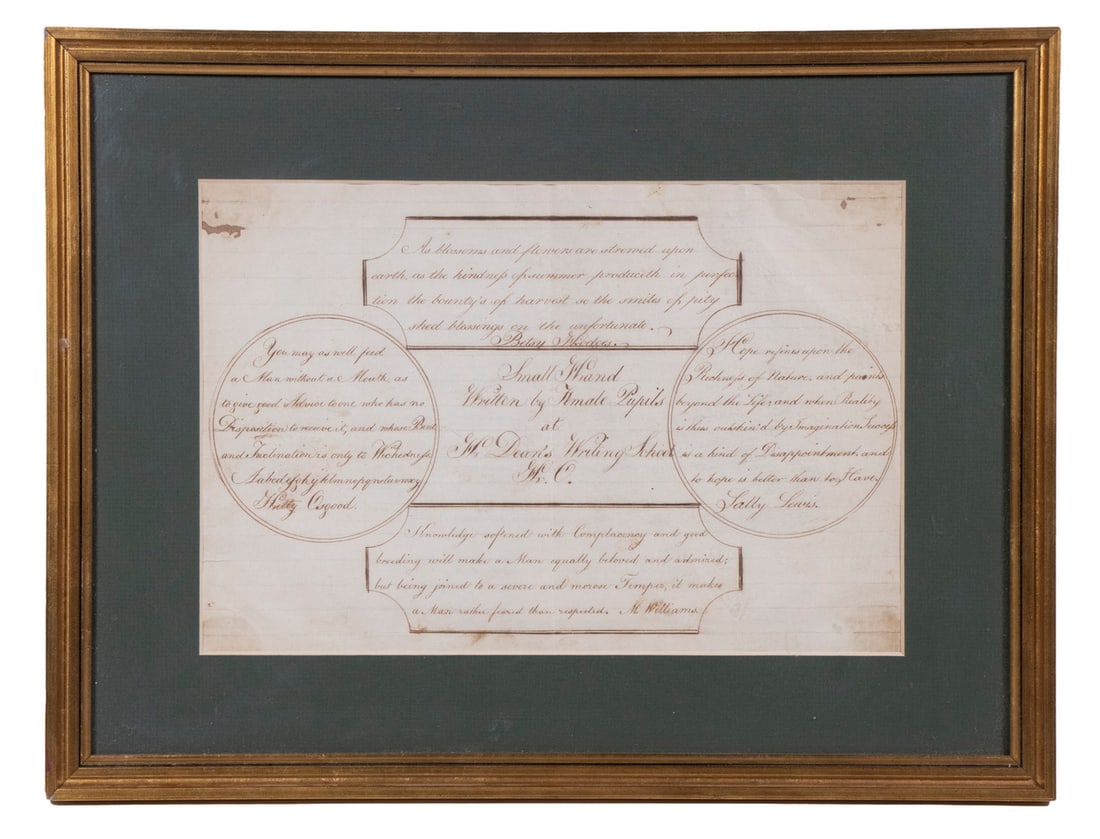 As blossoms and flowers are strewed upon
earth, as the kindness of summer produceth in perfec-
tion the bounty's of harvest so the smiles of pity
shed blessings on the unfortunate.
Betsy
You may as well feed
a Man without a Mouth, as
to give good Advice to one who has no
Disposition to receive it, and whose Bent
and Inclination is only to Wickedness
Osgood.
Small Hand
Written by Female Pupils
at
Dean's Writing School
Hope refines upon the
Richness of Nature, and paints
beyond the Life, and when Reality
is thus outshin'd by Imagination Success
is a kind of Disappointment, and
to hope is better than to Have,
Sally Lewis.
Knowledge softened with Complacency and good
breeding will make a Man equally beloved and admired;
but being joined to a severe and morose Temper, it makes
a Man rather feared than respected. M. Williams.